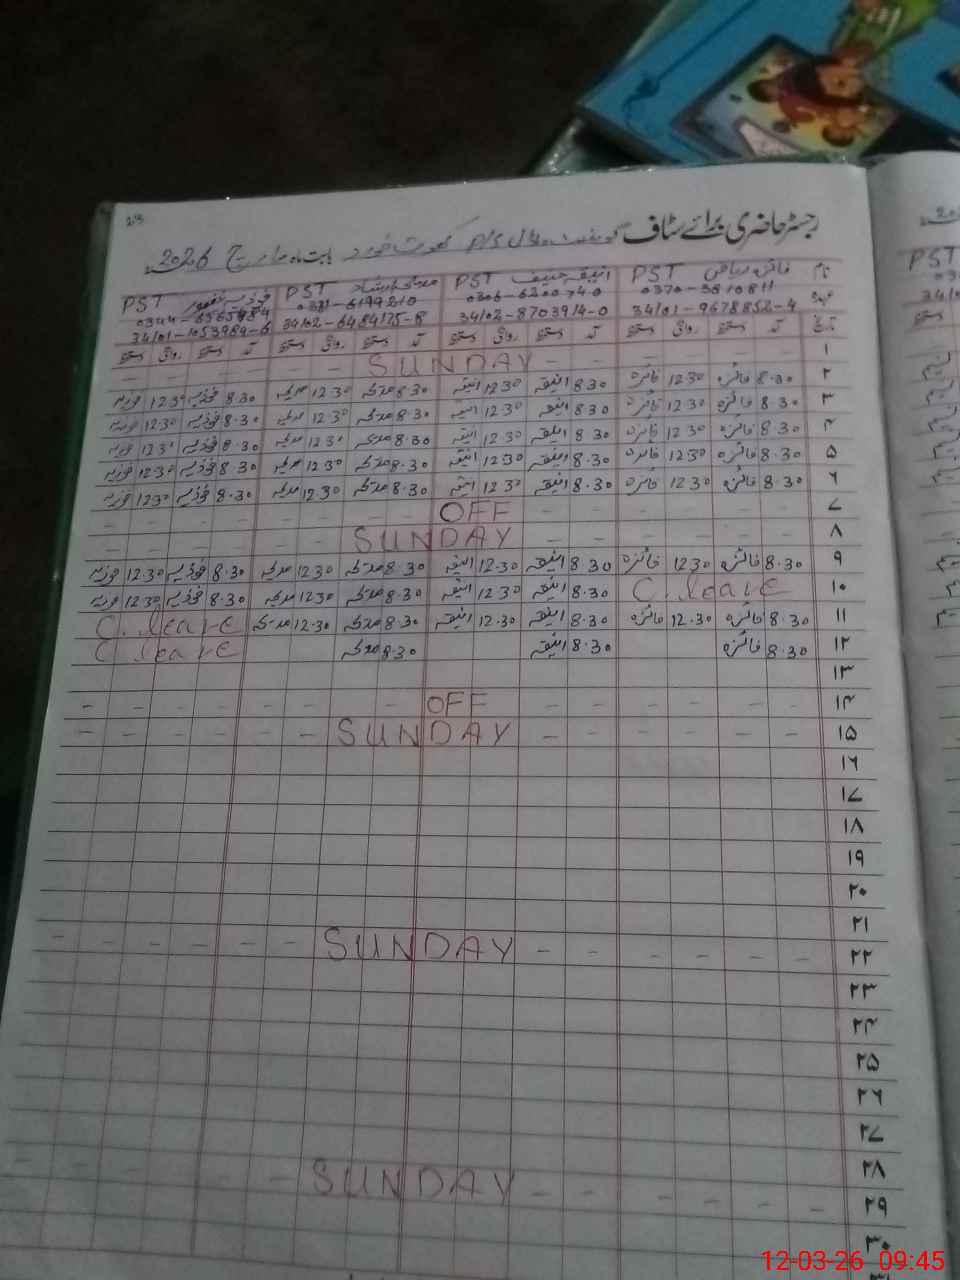 23
رجسٹر حاضری برائے سٹاف گورنمنٹ ماڈل P/S کھوت خورد بابت ماہ مارچ 2026
نام فائزہ ریاض PST انیقہ حنیف PST ارشاد PST فوزیہ غفور PST
عہدہ 0370-3810811 0306-6200740 0331-6199210 0344-6565984
34101-9678852-4 34102-8703914-0 34102-6484175-8 34101-1053984-6
تاریخ آمد دستخط روانگی دستخط آمد دستخط روانگی دستخط آمد دستخط روانگی دستخط آمد دستخط روانگی دستخط
۱ SUNDAY
۲ 8.30 فائزہ 12 30 فائزہ 8 30 انیقہ 12 30 انیقہ 8.30 مدیحہ 12 30 مدیحہ 8 30 فوزیہ 12 30 فوزیہ
۳ 8.30 فائزہ 12 30 فائزہ 8 30 انیقہ 12 30 انیقہ 8.30 مدیحہ 12 30 مدیحہ 8.30 فوزیہ 12 30 فوزیہ
۴ 8.30 فائزہ 12 30 فائزہ 8 30 انیقہ 12 30 انیقہ 8.30 مدیحہ 12 30 مدیحہ 8.30 فوزیہ 12 30 فوزیہ
۵ 8.30 فائزہ 12 30 فائزہ 8.30 انیقہ 12 30 انیقہ 8.30 مدیحہ 12 30 مدیحہ 8 30 فوزیہ 12 30 فوزیہ
۶ 8.30 فائزہ 12 30 فائزہ 8.30 انیقہ 12 30 انیقہ 8.30 مدیحہ 12 30 مدیحہ 8.30 فوزیہ 12 30 فوزیہ
۷ OFF
۸ SUNDAY
۹ 8.30 فائزہ 12 30 فائزہ 8 30 انیقہ 12.30 انیقہ 8.30 مدیحہ 12 30 مدیحہ 8.30 فوزیہ 12.30 فوزیہ
۱۰ C. leave 8.30 انیقہ 12 30 انیقہ 8.30 مدیحہ 12 30 مدیحہ 8.30 فوزیہ 12 30 فوزیہ
۱۱ 8.30 فائزہ 12.30 فائزہ 8.30 انیقہ 12.30 انیقہ 8.30 مدیحہ 12.30 مدیحہ C. leave
۱۲ 8.30 فائزہ 8.30 انیقہ 8.30 مدیحہ C leave
۱۳
۱۴ OFF
۱۵ SUNDAY
۱۶
۱۷
۱۸
۱۹
۲۰
۲۱
۲۲ SUNDAY
۲۳
۲۴
۲۵
۲۶
۲۷
۲۸
۲۹ SUNDAY
۳۰
PST
12-03-26 09:45